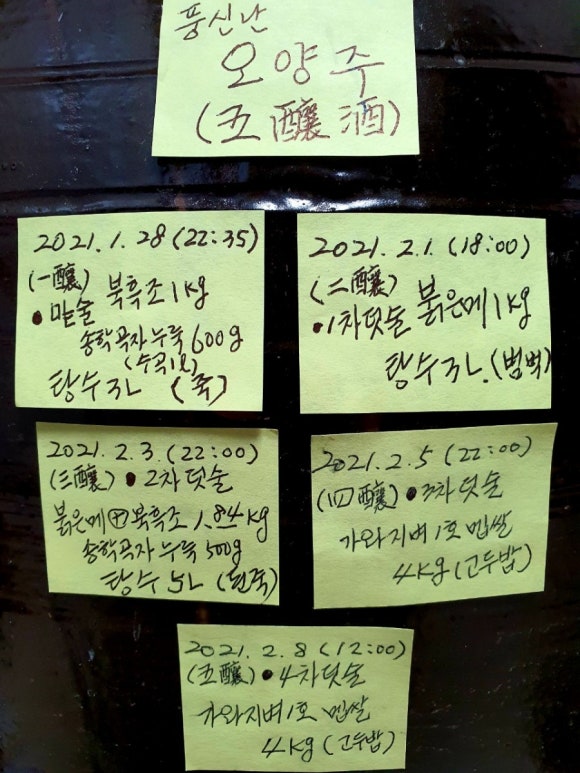 풍신난
오양주
(五釀酒)
2021.1.28(22:35)
(一釀)
• 밑술 북흑조 1kg
송학곡자누룩 600g
(수곡1ℓ)
탕수 3L (죽)
2021.2.1.(18:00)
(二釀)
•1차덧술 붉은메 1kg
탕수 3L.(범벅)
2021.2.3.(22:00)
(三釀) • 2차덧술
붉은메 ⊕ 북흑조 1.84kg
송학곡자누룩 500g
탕수 5L (된죽)
2021.2.5(22:00)
(四釀) •3차덧술
가와지벼1호 멥쌀
4kg(고두밥)
2021.2.8(12:00)
(五釀) •4차덧술
가와지벼1호 멥쌀
4kg(고두밥)